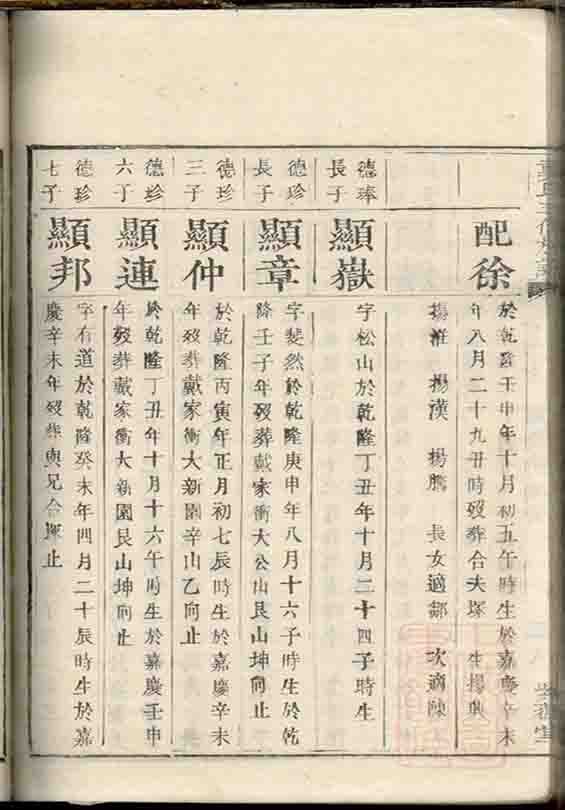 配徐
於乾隆壬申年十月初五午時生於嘉慶辛未
年八月二十九丑時歿葬合夫塚 生揚興
揚淮 揚漢 揚騰 長女適鄒 次適陳
德奉
長子
顯嶽
字松山於乾隆丁丑年十月二十四子時生
德珍
長子
顯章
字斐然於乾隆庚申年八月十六子時生於乾
隆壬子年歿葬戴家衝大公山艮山坤向止
德珍
三子
顯仲
於乾隆丙寅年正月初七辰時生於嘉慶辛未
年歿葬戴家衝大新園辛山乙向止
德珍
六子
顯連
於乾隆丁丑年十月十六午時生於嘉慶壬申
年歿葬戴家衝大新園艮山坤向止
德珍
七子
顯邦
字有道於乾隆癸未年四月二十辰時生於嘉
慶辛未年歿葬與兄合塚止